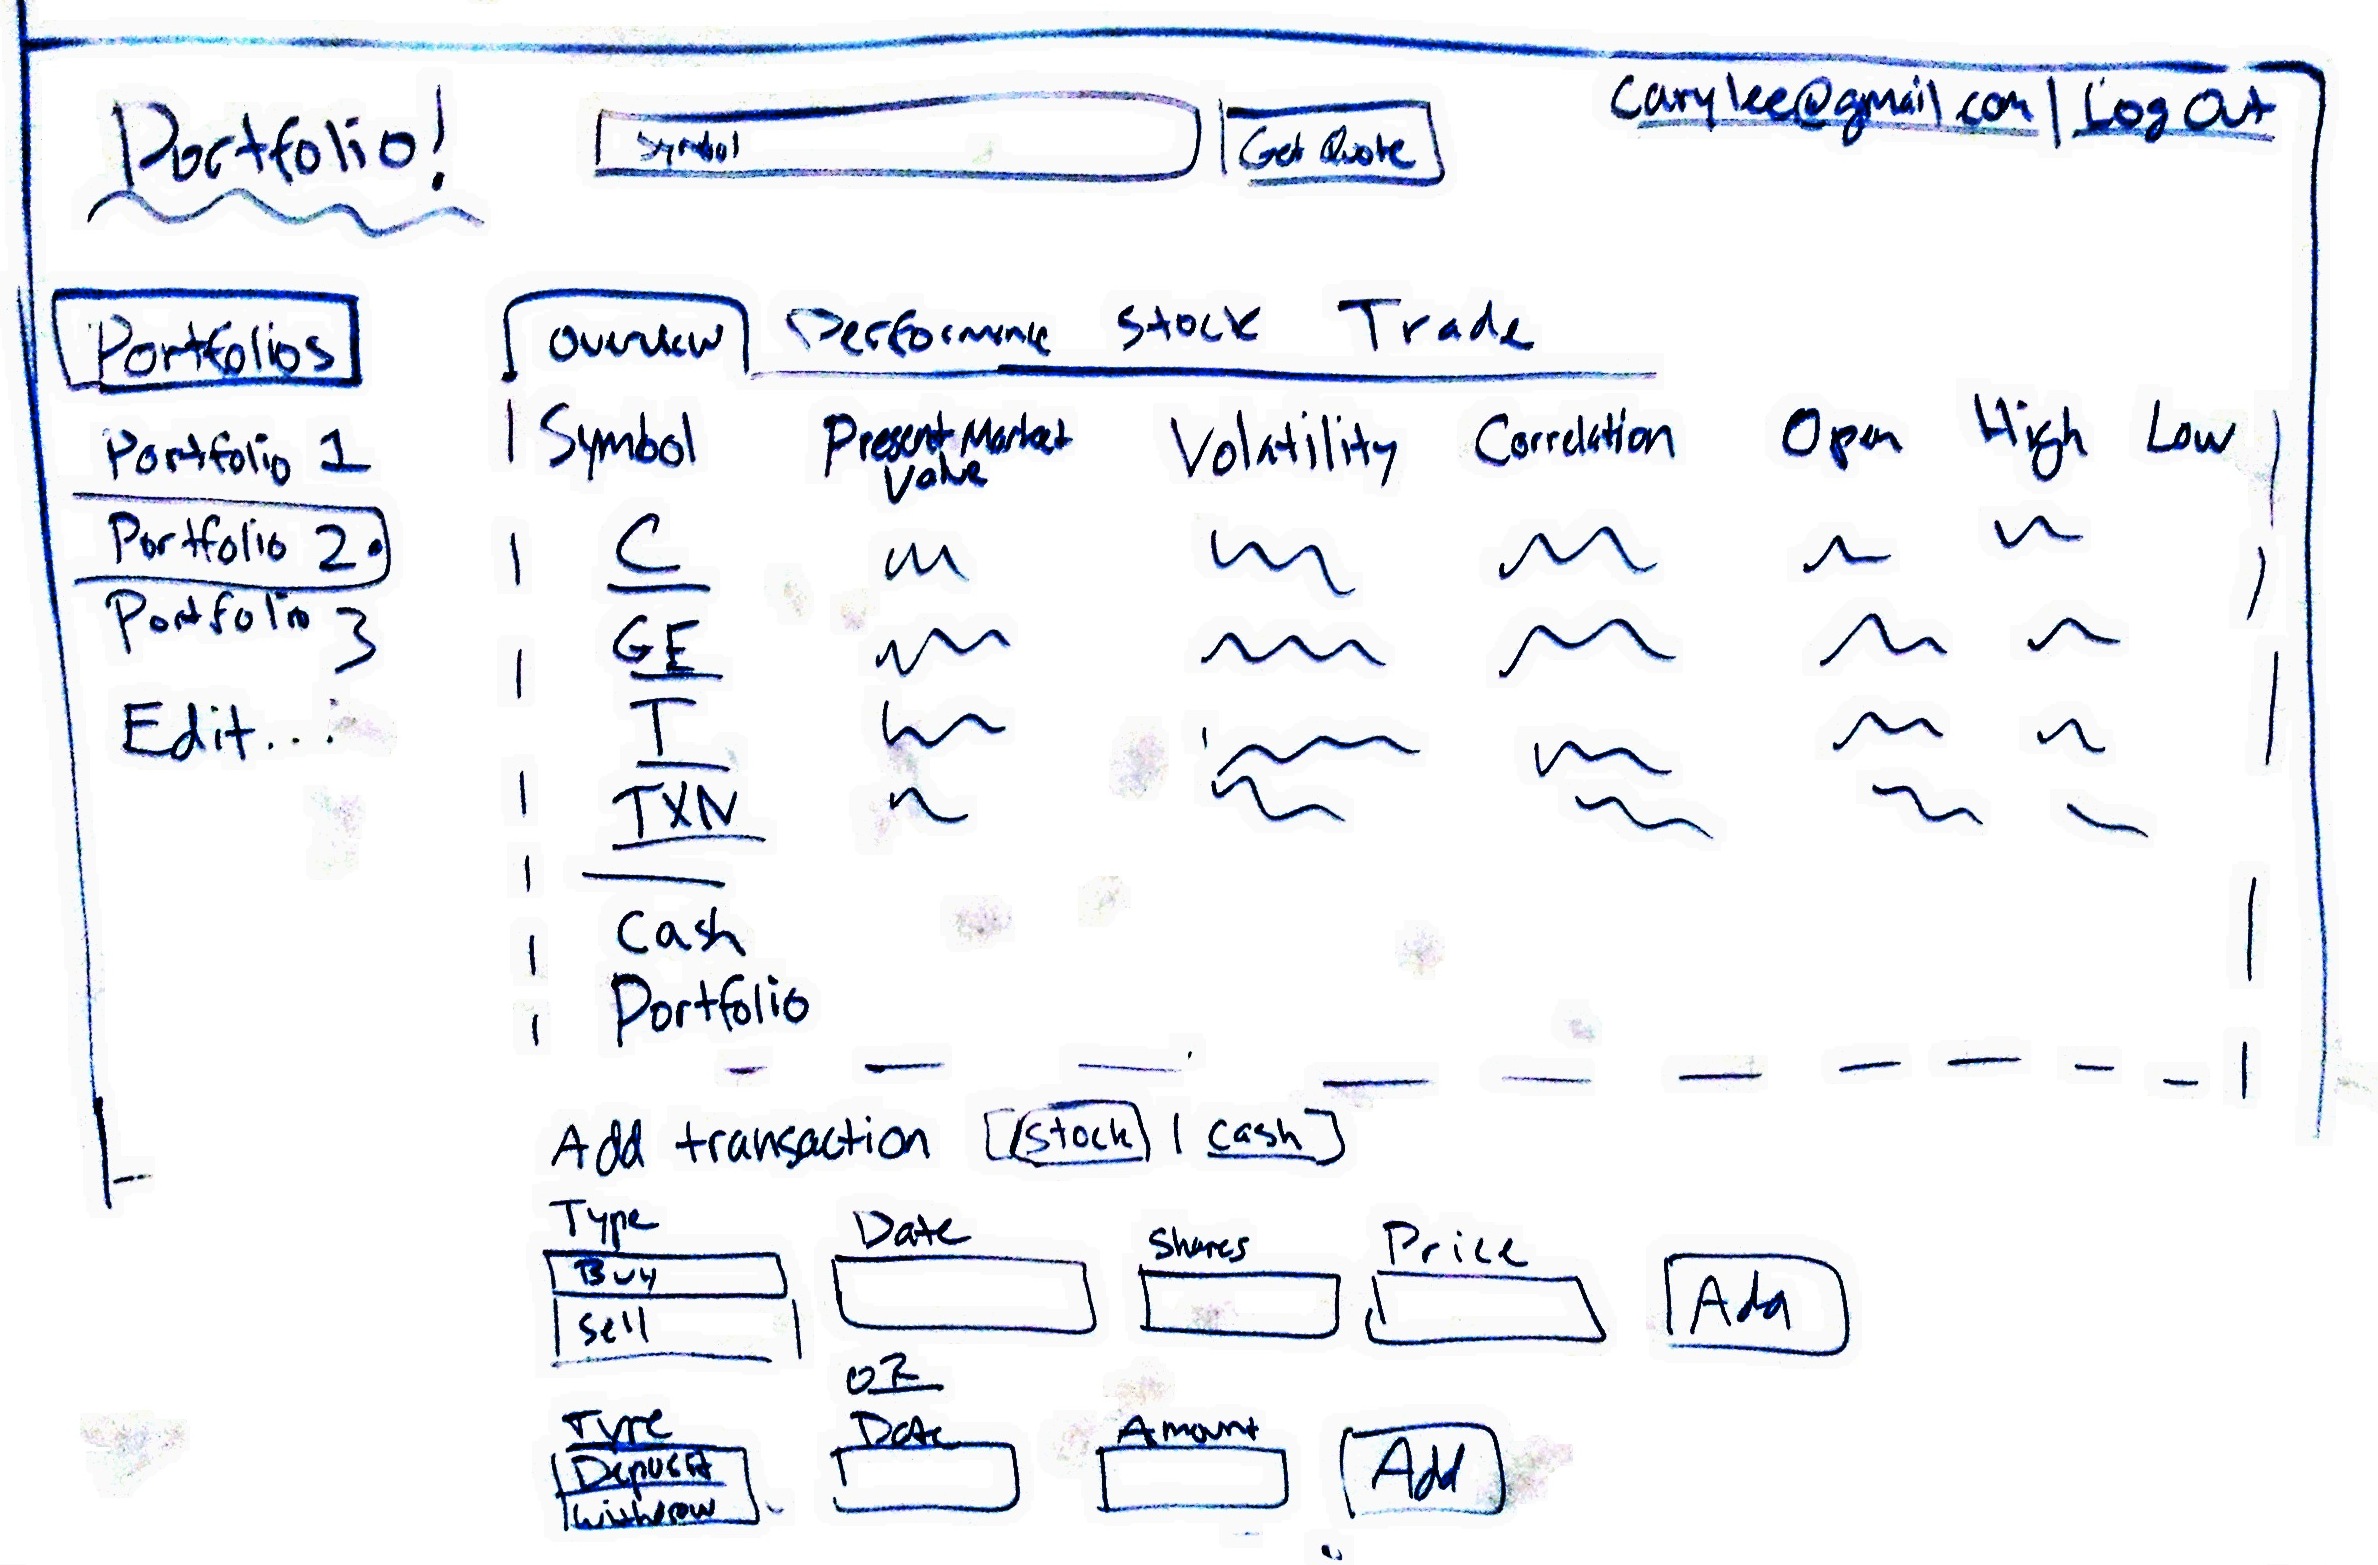 Portfolio!
Symbol
Get Quote
carylee@gmail.com | Log Out
Portfolios
Portfolio 1
Portfolio 2
Portfolio 3
Edit...
Overview Performance Stock Trade
Symbol Present Market Value Volatility Correlation Open High Low
C
GE
T
TXN
Cash
Portfolio
Add transaction [stock | cash]
Type Date Shares Price
Buy
Sell
Add
OR
Type Date Amount
Deposit
Withdraw
Add